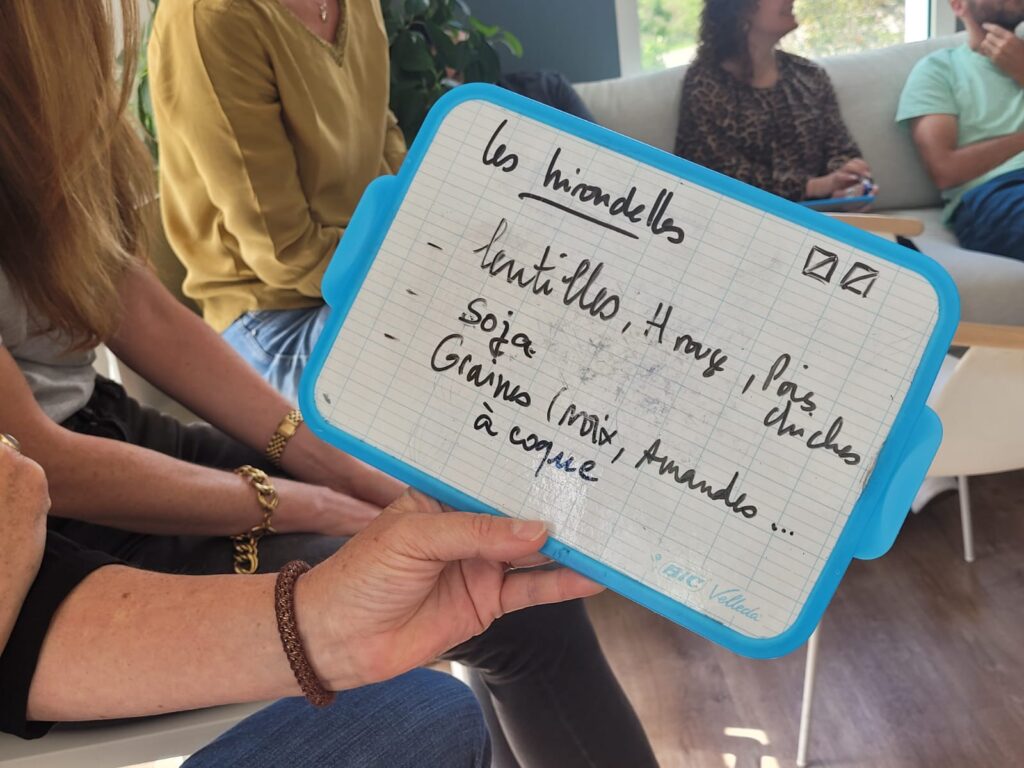 les hirondelles
- lentilles, H rouge, Pois chiches
- soja
- Graines (noix, Amandes ...
à coque
BIC Velleda